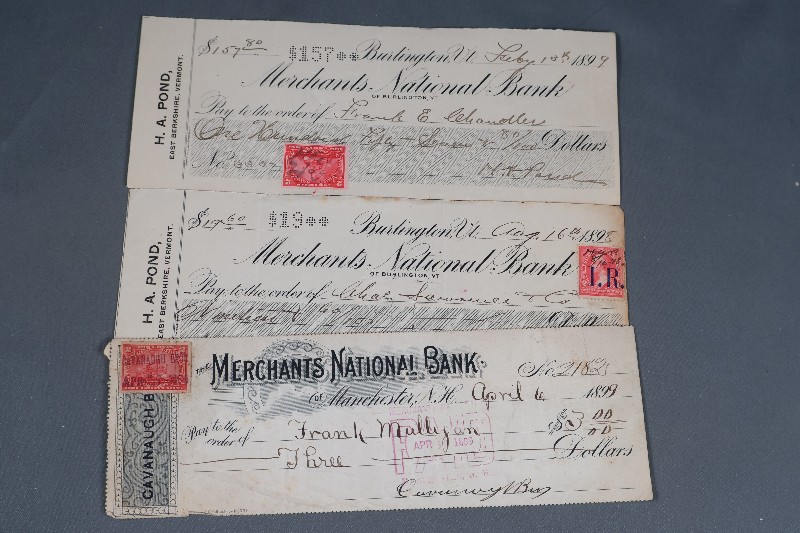 H. A. POND,
EAST BERKSHIRE, VERMONT.
$157 80 $157** Burlington, Vt. Feby 10th 1899
Merchants National Bank
OF BURLINGTON, VT.
Pay to the order of Frank E. Chandler
One Hundred Fifty Seven & 80/100 Dollars
No.
H. A. Pond
H. A. POND,
EAST BERKSHIRE, VERMONT.
$19 60 $19** Burlington, Vt. Aug. 16th 1898
Merchants National Bank
OF BURLINGTON, VT.
I.R.
Pay to the order of Chas. & Co
CAVANAUGH BROS
APR
CAVANAUGH B
THE MERCHANTS NATIONAL BANK No.
OF Manchester, N.H. April 6 1899
Pay to the order of Frank Mulligan $3 00
APR
Three Dollars
Cavanaugh Bros